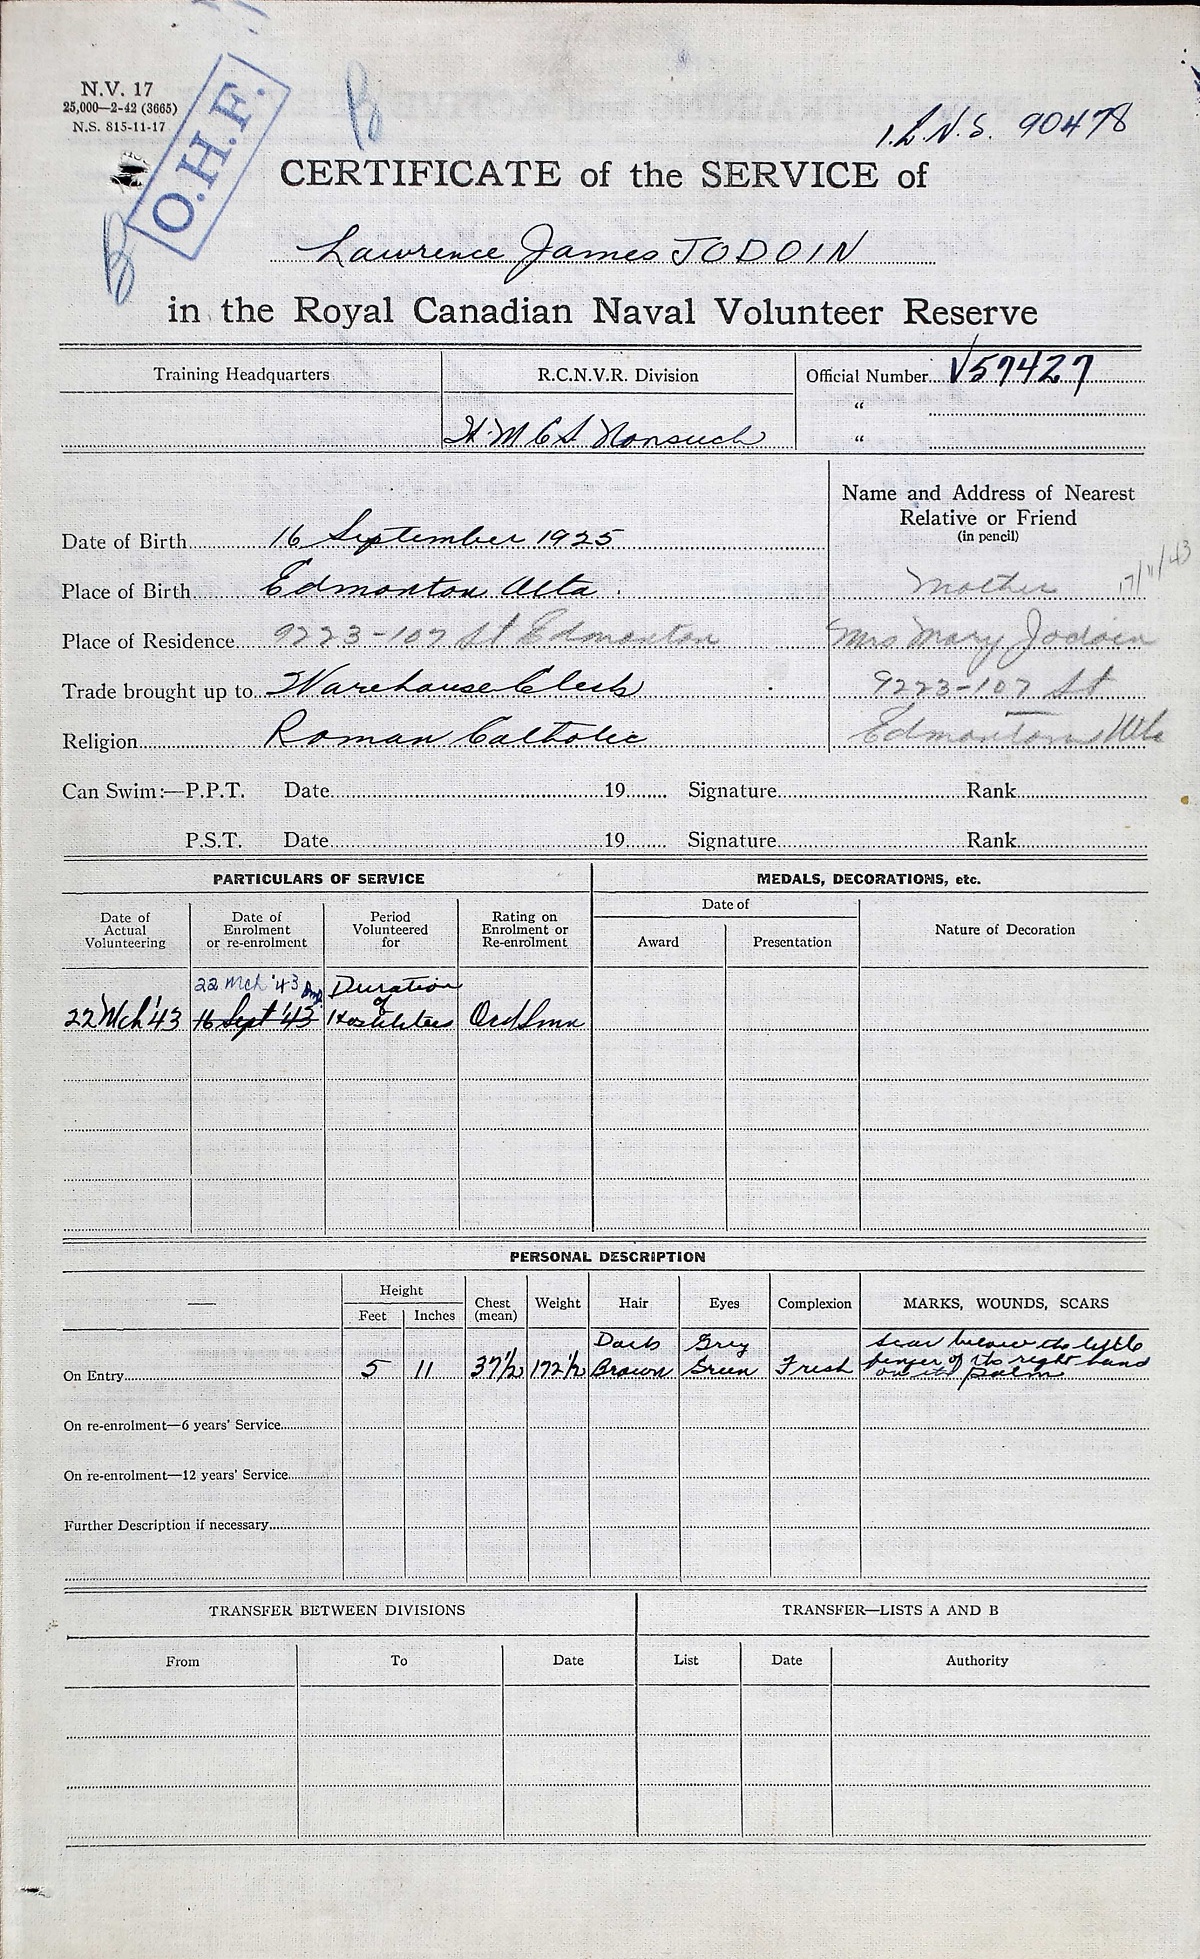 N.V. 17
25,000—2-42 (3665)
N.S. 815-11-17
O.H.F.
B
B
90478
CERTIFICATE of the SERVICE of
Lawrence James JODOIN
in the Royal Canadian Naval Volunteer Reserve
Training Headquarters
R.C.N.V.R. Division
Official Number V57427
"
H.M.C.S. Nonsuch
"
Name and Address of Nearest
Relative or Friend
(in pencil)
Date of Birth 16 September 1925
Place of Birth Edmonton Alta.
Mother 17/11/43
Place of Residence 9223-107 St Edmonton
Mrs Mary Jodoin
Trade brought up to Warehouse Clerk
9223-107 St
Religion Roman Catholic
Edmonton Alta
Can Swim:—P.P.T. Date 19 Signature Rank
P.S.T. Date 19 Signature Rank
PARTICULARS OF SERVICE
MEDALS, DECORATIONS, etc.
Date of Actual Volunteering
Date of Enrolment or re-enrolment
Period Volunteered for
Rating on Enrolment or Re-enrolment
Date of
Award
Presentation
Nature of Decoration
22 Mch '43 Duration
of
22 Mch '43 16 Sept '43 Hostilities Ord Smn
PERSONAL DESCRIPTION
—
Height
Feet
Inches
Chest (mean)
Weight
Hair
Eyes
Complexion
MARKS, WOUNDS, SCARS
Dark Grey Scar below the little
On Entry 5 11 37 1/2 172 1/2 Brown Green Fresh finger of the right hand
on the palm
On re-enrolment—6 years' Service
On re-enrolment—12 years' Service
Further Description if necessary
TRANSFER BETWEEN DIVISIONS
TRANSFER—LISTS A AND B
From
To
Date
List
Date
Authority